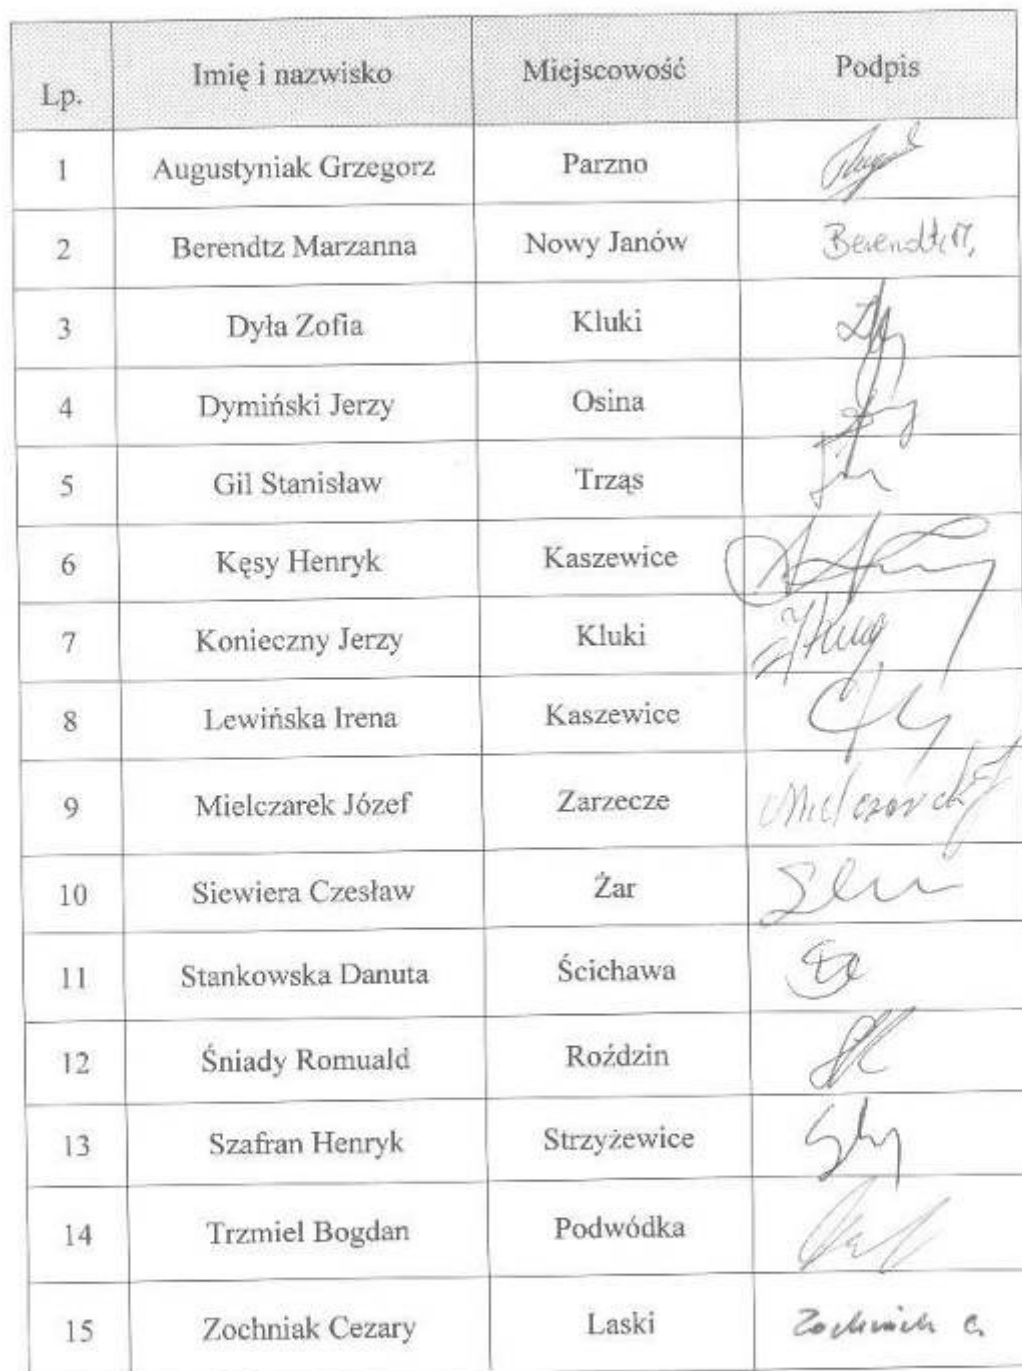 Lp. Imię i nazwisko Miejscowość Podpis
1 Augustyniak Grzegorz Parzno
2 Berendtz Marzanna Nowy Janów Berendt M.
3 Dyła Zofia Kluki
4 Dymiński Jerzy Osina
5 Gil Stanisław Trząs
6 Kęsy Henryk Kaszewice
7 Konieczny Jerzy Kluki
8 Lewińska Irena Kaszewice
9 Mielczarek Józef Zarzecze Mielczarek
10 Siewiera Czesław Żar
11 Stankowska Danuta Ścichawa
12 Śniady Romuald Roździn
13 Szafran Henryk Strzyżewice
14 Trzmiel Bogdan Podwódka
15 Zochniak Cezary Laski Zochniak C.